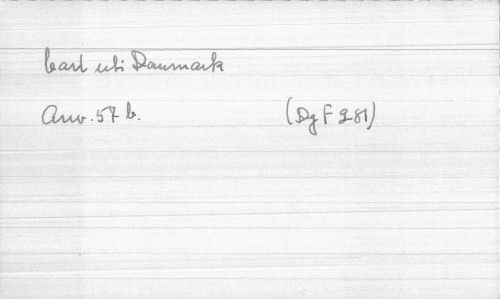 Carl uti Danmark
Arw. 57 b. (DgF 281)